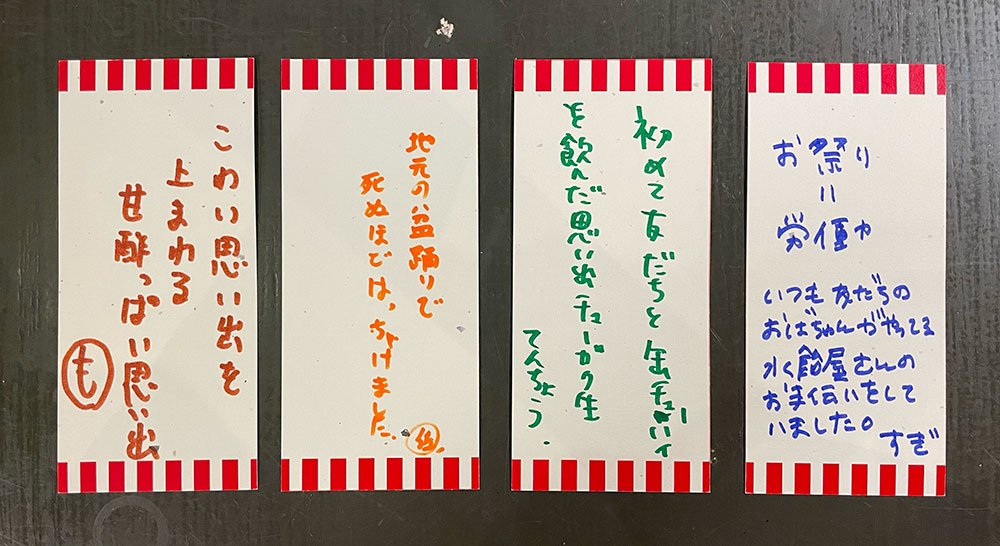 こわい思い出を
上まわる
甘酢っぱい思い出
も
地元の盆踊りで
死ぬほどはっちゃけました。
初めて友だちと缶チューハイ
を飲んだ思い出チューがク生
てんちょう.
お祭り
=
労働力
いつも友だちの
おばちゃんがやってる
水飴屋さんの
お手伝いをして
いました。
すぎ